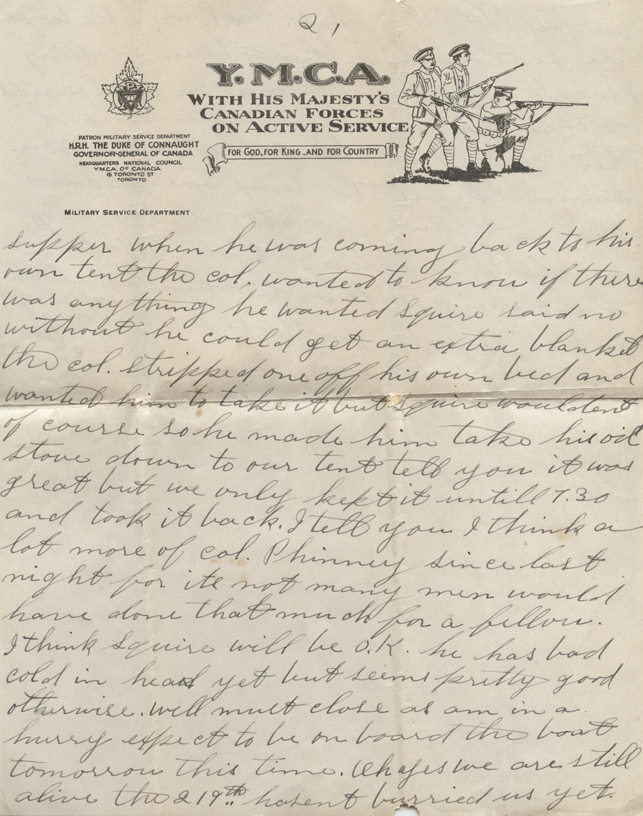 2,
Y.M.C.A.
WITH HIS MAJESTY'S
CANADIAN FORCES
ON ACTIVE SERVICE
FOR GOD, FOR KING, AND FOR COUNTRY
PATRON MILITARY SERVICE DEPARTMENT
H.R.H. THE DUKE OF CONNAUGHT
GOVERNOR-GENERAL OF CANADA
HEADQUARTERS NATIONAL COUNCIL
Y.M.C.A. OF CANADA
15 TORONTO ST
TORONTO
MILITARY SERVICE DEPARTMENT
supper when he was coming back to his
own tent the col. wanted to know if there
was anything he wanted Squire said no
without he could get an extra blanket
the col. stripped one off his own bed and
wanted him to take it but Squire wouldent
of course so he made him take his oil
stove down to our tent tell you it was
great but we only kept it untill 7.30
and took it back. I tell you I think a
lot more of col. Phinney since last
night for its not many men would
have done that much for a fellow.
I think Squire will be O.K. he has bad
cold in head yet but seems pretty good
otherwise. will must close as am in a
hurry expect to be on board the boat
tomorrow this time. Oh yes we are still
alive the 219th hasent burried us yet.